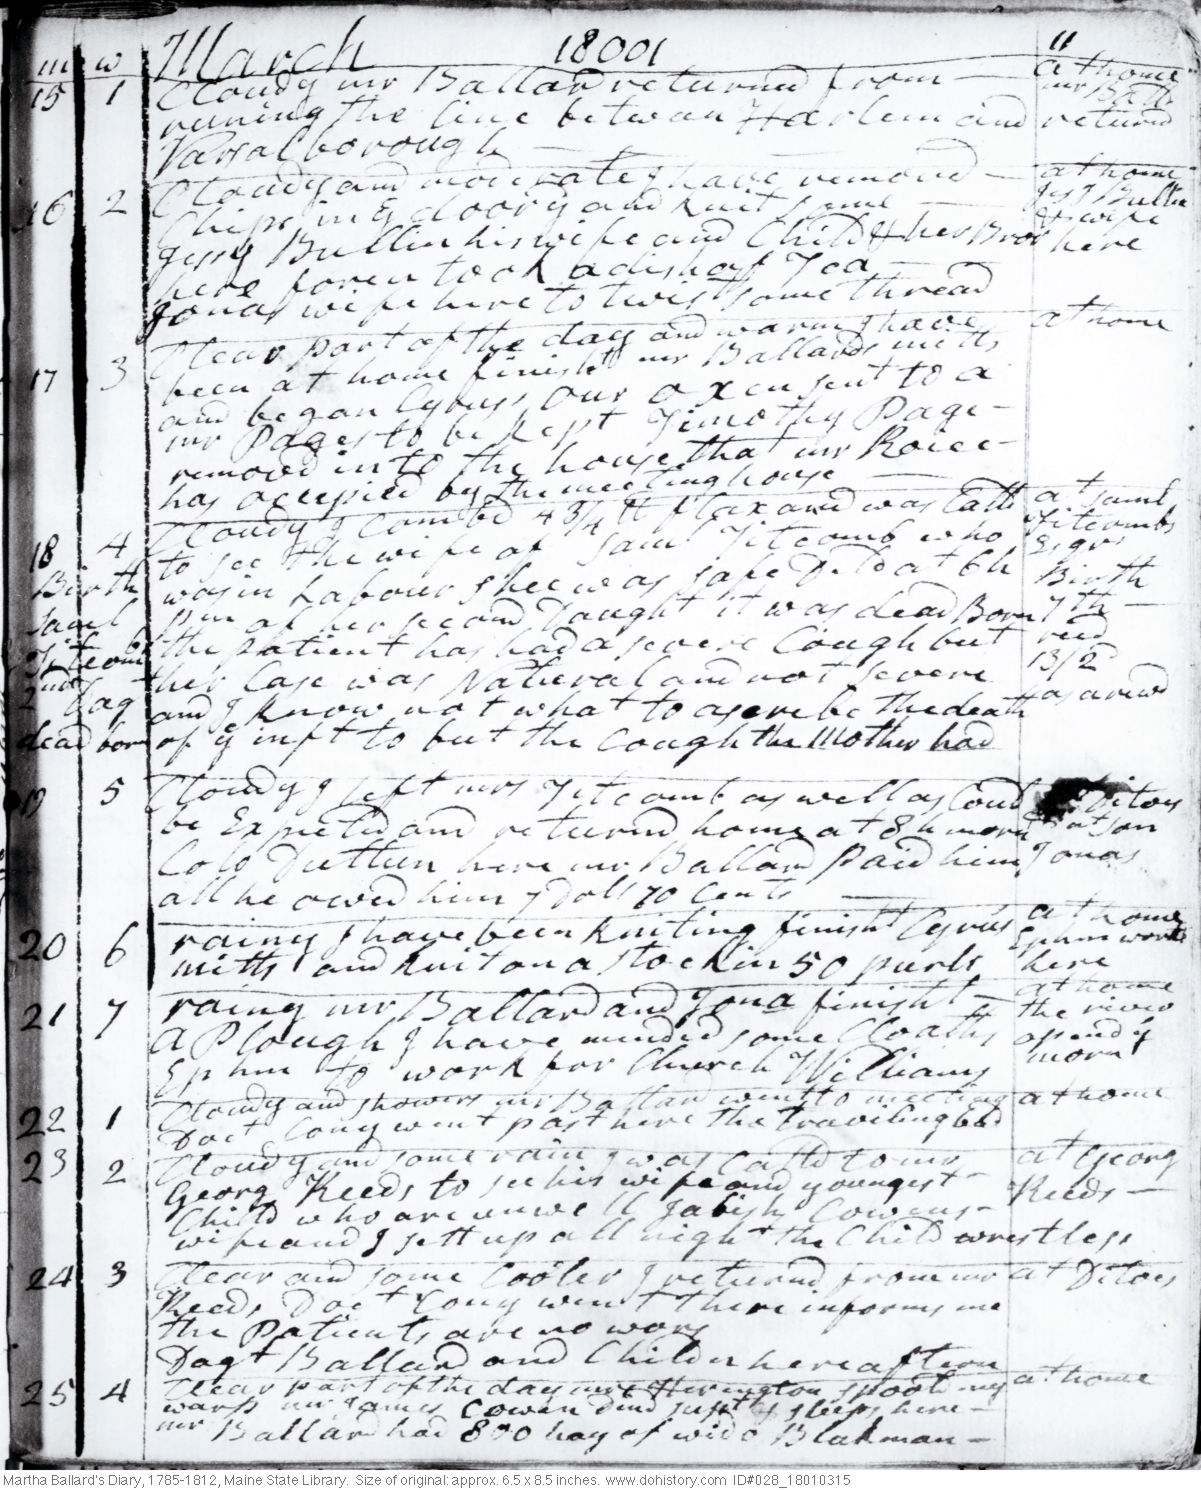 m w March 18001 11
15 1 Cloudy mr Ballard returnd from at home
runing the line between Harlem and mr Ball
Vassalborough returnd
16 2 Cloudy and moderate I have removd at home
Chips in ye doory'd and knit some Jesy Bullin
Jessy Bullin his wife and Child & her Bror & wife
here foren took a dish of Tea here
Jonas wife here to twist some thread
17 3 Clear part of the day and warm I have at home
been at home finisht mr Ballards mitts
and began Cyruss, our oxen sent to a
mr Pages to be kept Timothy Page
removd in to the house that mr Roice
has occepied by the meeting house
18 4 Cloudy I Combd 4 3/4 lb flax and was Calld at Saml
to see the wife of Saml Titcomb who Titcombs
was in Labour shee was safe Dld at 6 h Esqrs
pm of her second Daught it was dead Born Birth 7th
the patient has had a severe Cough but recd
her Case was Natural and not severe 13/2
and I know not what to ascribe the death as arewd
of ye inft to but the Cough the Mother had
Birth
Saml
Titcombs
2nd Dagt
dead born
19 5 Cloudy I left mrs Titcomb as well as Could at Ditoes
be Expected and returnd home at 8 h morn & at son
Colo Dutten here mr Ballard paid him Jonas
all he owed him 7 Dols 70 Cents
20 6 rainy I have been kniting finisht Cyrus at home
mitts and knit on a stockin 50 purls Ephm workt
here
21 7 rainy mr Ballard and Jona finisht at home
A Plough I have mended some Cloaths the river
Ephm to work for Church Williams opend ys
morn
22 1 Cloudy and showers mr Ballard went to meeting at home
Doct Cony went past here the travileing bad
23 2 Cloudy and some rain I was Calld to mr at Georg
Georg Reeds to see his wife and youngest Reeds
Child who are unwell Jabish Cowens
wife and I sett up all night the Child wrestless
24 3 Clear and some Cooler I returnd from mr at Ditoes
Reeds, Doct Cony went there informs me
the patients are no wors
Dagt Ballard and Childn here aftern
25 4 Clear part of the day mrs Herington spoold my at home
warp mr James Cowen dind supt & sleeps here
mr Ballard had 800 hay of wido Blakman
Martha Ballard's Diary, 1785-1812, Maine State Library. Size of original: approx. 6.5 x 8.5 inches. www.dohistory.com ID#028_18010315